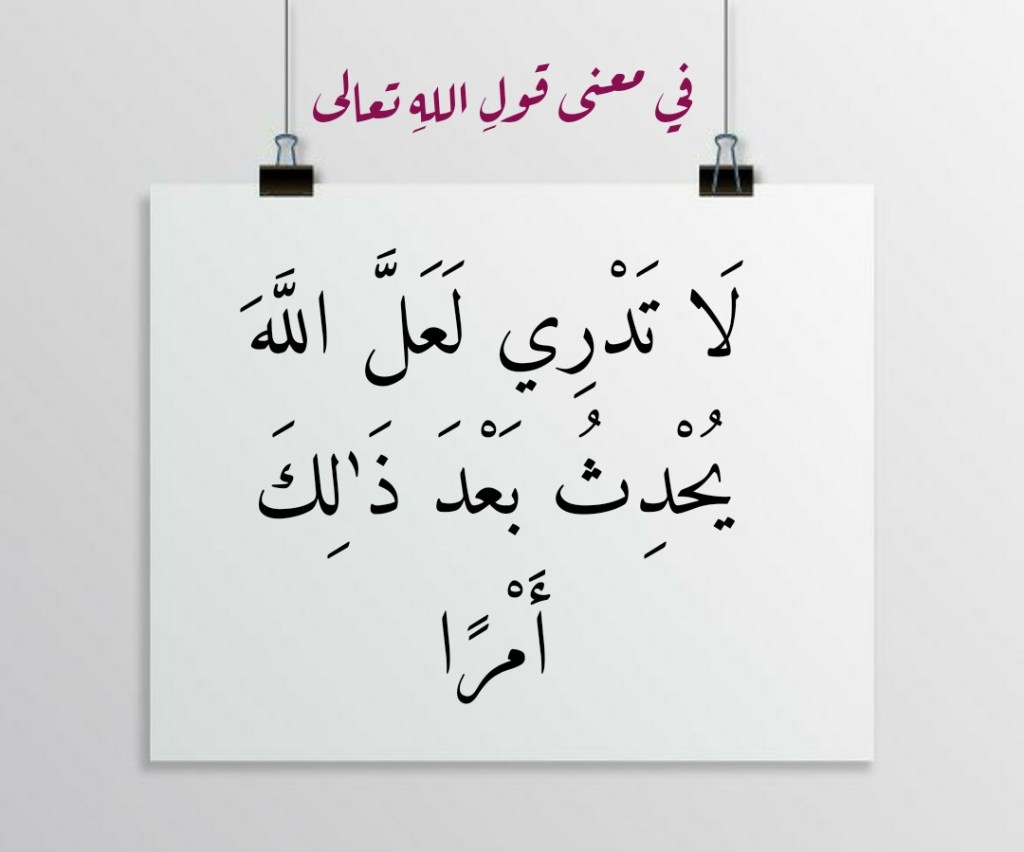 في معنى قولِ اللهِ تعالى
لَا تَدْرِي لَعَلَّ اللَّهَ
يُحْدِثُ بَعْدَ ذَٰلِكَ
أَمْرًا